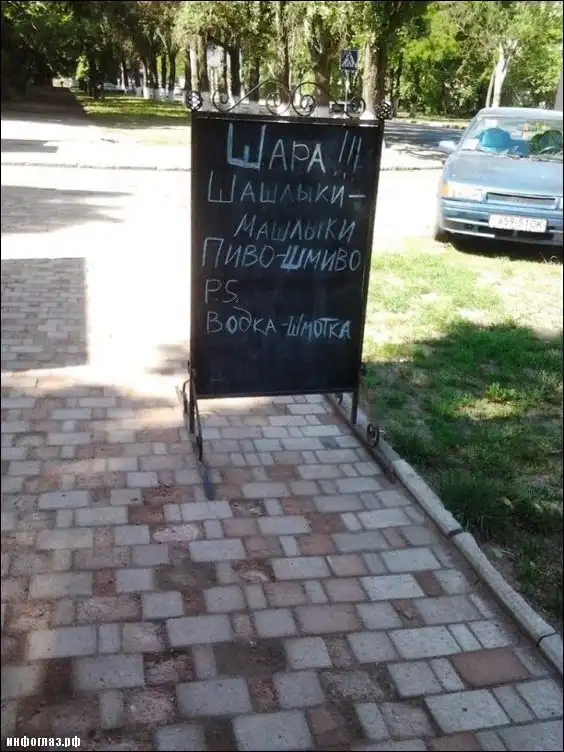 ШАРА!!!
ШАШЛЫКИ-
МАШЛЫКИ
ПИВО-ШМИВО
P.S.
ВОДКА-ШМОТКА
659-51ОК
инфоглаз.рф